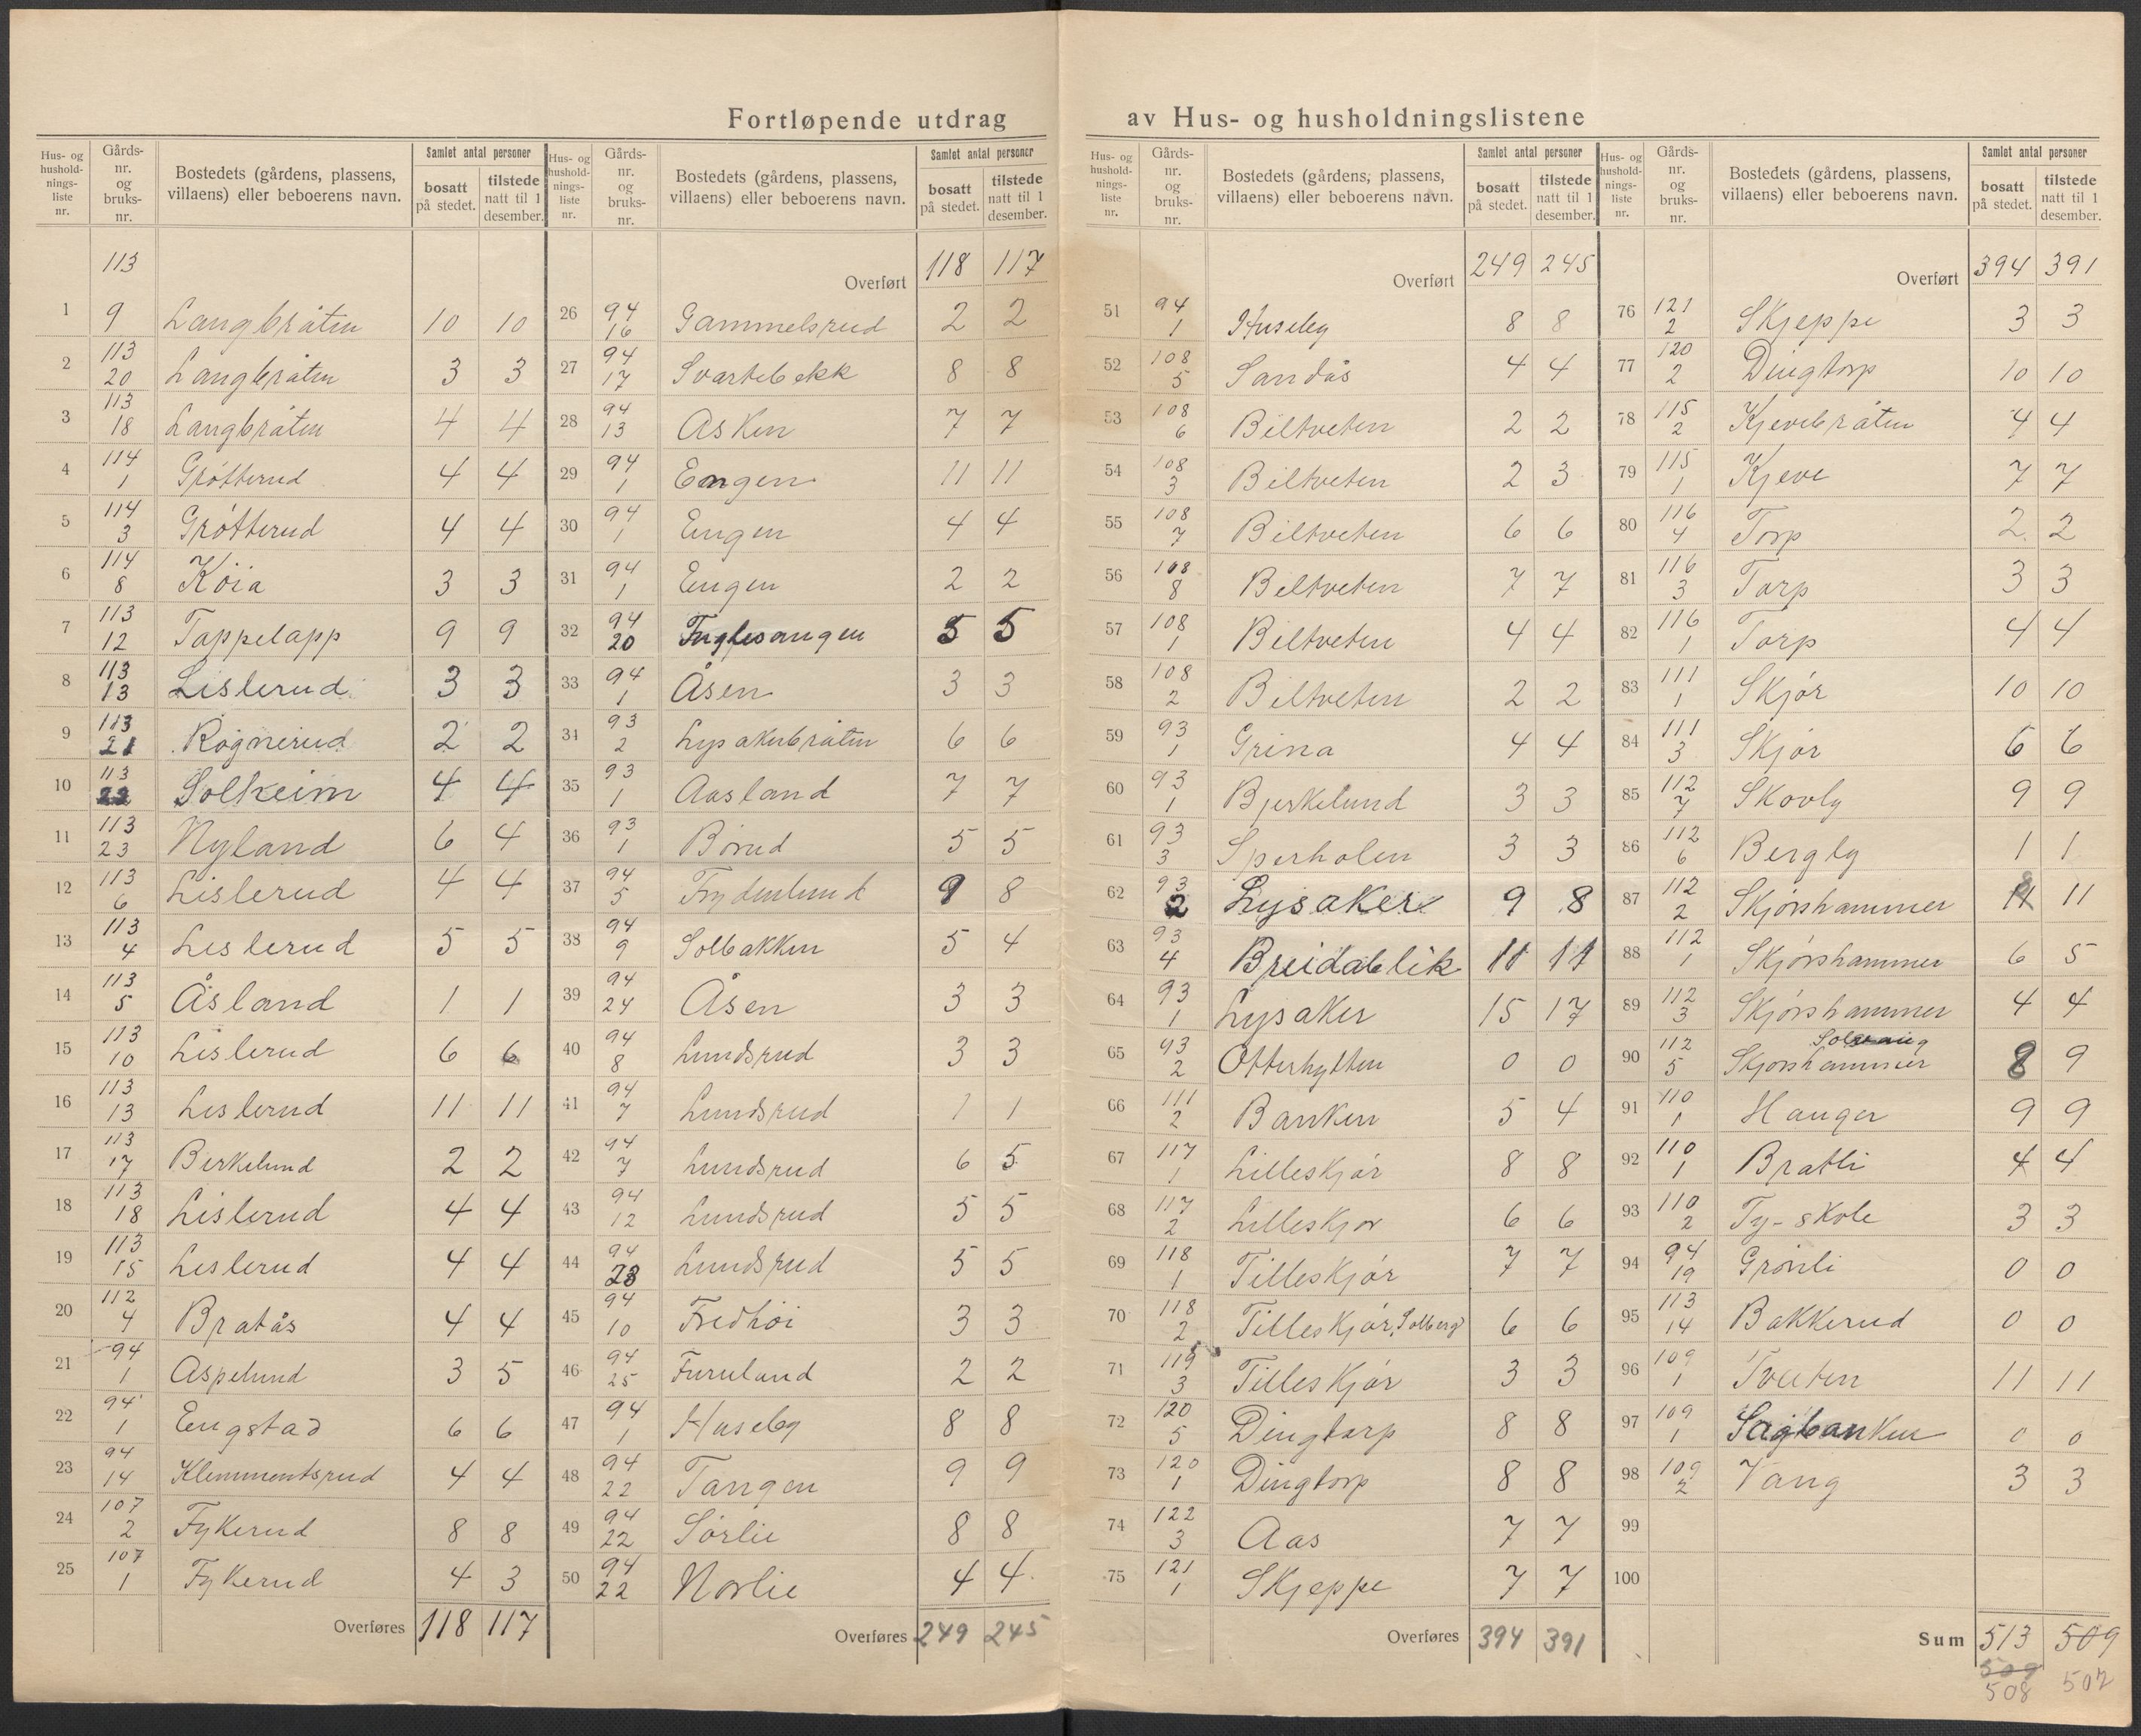 Fortløpende utdrag av Hus- og husholdningslistene
Hus- og husholdnings- liste nr. | Gårds- nr. og bruks- nr. | Bostedets (gårdens, plassens, villaens) eller beboerens navn. | Samlet antal personer | bosatt på stedet. | tilstede natt til 1 desember.
113
1 | 9 | Langbråten | 10 | 10
2 | 113 20 | Langbråten | 3 | 3
3 | 113 18 | Langbråten | 4 | 4
4 | 114 1 | Grøtterud | 4 | 4
5 | 114 3 | Grøtterud | 4 | 4
6 | 114 8 | Köia | 3 | 3
7 | 113 12 | Tappelapp | 9 | 9
8 | 113 13 | Lislerud | 3 | 3
9 | 113 21 | Rognerud | 2 | 2
10 | 113 22 | Solheim | 4 | 4
11 | 113 23 | Nyland | 6 | 4
12 | 113 6 | Lislerud | 4 | 4
13 | 113 4 | Lislerud | 5 | 5
14 | 113 5 | Åsland | 1 | 1
15 | 113 10 | Lislerud | 6 | 6
16 | 113 13 | Lislerud | 11 | 11
17 | 113 17 | Birkelund | 2 | 2
18 | 113 18 | Lislerud | 4 | 4
19 | 113 15 | Lislerud | 4 | 4
20 | 112 4 | Bratås | 4 | 4
21 | 94 1 | Aspelund | 3 | 5
22 | 94 1 | Engstad | 6 | 6
23 | 94 14 | Klemmentsrud | 4 | 4
24 | 107 2 | Fykerud | 8 | 8
25 | 107 1 | Fykerud | 4 | 3
Overføres | 118 | 117
Hus- og husholdnings- liste nr. | Gårds- nr. og bruks- nr. | Bostedets (gårdens, plassens, villaens) eller beboerens navn. | Samlet antal personer | bosatt på stedet. | tilstede natt til 1 desember.
Overført | 118 | 117
26 | 94 16 | Gammelsrud | 2 | 2
27 | 94 17 | Svartebekk | 8 | 8
28 | 94 13 | Asken | 7 | 7
29 | 94 1 | Engen | 11 | 11
30 | 94 1 | Engen | 4 | 4
31 | 94 1 | Engen | 2 | 2
32 | 94 20 | Fuglesangen | 5 | 5
33 | 94 1 | Åsen | 3 | 3
34 | 93 2 | Lysakerbråten | 6 | 6
35 | 93 1 | Aasland | 7 | 7
36 | 93 1 | Börud | 5 | 5
37 | 94 5 | Frydenlund | 9 | 8
38 | 94 9 | Solbakken | 5 | 4
39 | 94 24 | Åsen | 3 | 3
40 | 94 8 | Lundsrud | 3 | 3
41 | 94 7 | Lundsrud | 1 | 1
42 | 94 7 | Lundsrud | 6 | 5
43 | 94 12 | Lundsrud | 5 | 5
44 | 94 23 | Lundsrud | 5 | 5
45 | 94 10 | Fredhöi | 3 | 3
46 | 94 25 | Furuland | 2 | 2
47 | 94 1 | Huseby | 8 | 8
48 | 94 22 | Tangen | 9 | 9
49 | 94 22 | Sörlie | 8 | 8
50 | 94 22 | Norlie | 4 | 4
Overføres | 249 | 245
Hus- og husholdnings- liste nr. | Gårds- nr. og bruks- nr. | Bostedets (gårdens, plassens, villaens) eller beboerens navn. | Samlet antal personer | bosatt på stedet. | tilstede natt til 1 desember.
Overført | 249 | 245
51 | 94 1 | Huseby | 8 | 8
52 | 108 5 | Sandås | 4 | 4
53 | 108 6 | Biltveten | 2 | 2
54 | 108 3 | Biltveten | 2 | 3
55 | 108 7 | Biltveten | 6 | 6
56 | 108 8 | Biltveten | 7 | 7
57 | 108 1 | Biltveten | 4 | 4
58 | 108 2 | Biltveten | 2 | 2
59 | 93 1 | Grina | 4 | 4
60 | 93 1 | Bjerkelund | 3 | 3
61 | 93 3 | Sperholen | 3 | 3
62 | 93 2 | Lysaker | 9 | 8
63 | 93 4 | Breidablik | 11 | 11
64 | 93 1 | Lysaker | 15 | 17
65 | 93 2 | Otterhytten | 0 | 0
66 | 111 2 | Banken | 5 | 4
67 | 117 1 | Lilleskjör | 8 | 8
68 | 117 2 | Lilleskjör | 6 | 6
69 | 118 1 | Tilleskjör | 7 | 7
70 | 118 2 | Tilleskjör, Solberg | 6 | 6
71 | 119 3 | Tilleskjör | 3 | 3
72 | 120 5 | Dingtorp | 8 | 8
73 | 120 1 | Dingtorp | 8 | 8
74 | 122 3 | Aas | 7 | 7
75 | 121 1 | Skjeppe | 7 | 7
Overføres | 394 | 391
Hus- og husholdnings- liste nr. | Gårds- nr. og bruks- nr. | Bostedets (gårdens, plassens, villaens) eller beboerens navn. | Samlet antal personer | bosatt på stedet. | tilstede natt til 1 desember.
Overført | 394 | 391
76 | 121 2 | Skjeppe | 3 | 3
77 | 120 2 | Dingtorp | 10 | 10
78 | 115 2 | Kjevebråten | 4 | 4
79 | 115 1 | Kjeve | 7 | 7
80 | 116 4 | Torp | 2 | 2
81 | 116 3 | Torp | 3 | 3
82 | 116 1 | Torp | 4 | 4
83 | 111 1 | Skjör | 10 | 10
84 | 111 3 | Skjör | 6 | 6
85 | 112 7 | Skovly | 9 | 9
86 | 112 6 | Bergly | 1 | 1
87 | 112 2 | Skjörshammer | 11 | 11
88 | 112 1 | Skjörshammer | 6 | 5
89 | 112 3 | Skjörshammer | 4 | 4
Solvang
90 | 112 5 | Skjorshammer | 8 | 9
91 | 110 1 | Hauger | 9 | 9
92 | 110 1 | Bratli | 4 | 4
93 | 110 2 | Ty-skole | 3 | 3
94 | 94 19 | Grönli | 0 | 0
95 | 113 14 | Bakkerud | 0 | 0
96 | 109 1 | Tveten | 11 | 11
97 | 109 1 | Sagbanken | 0 | 0
98 | 109 2 | Vang | 3 | 3
99
100
Sum | 513 | 509
509
508 | 507